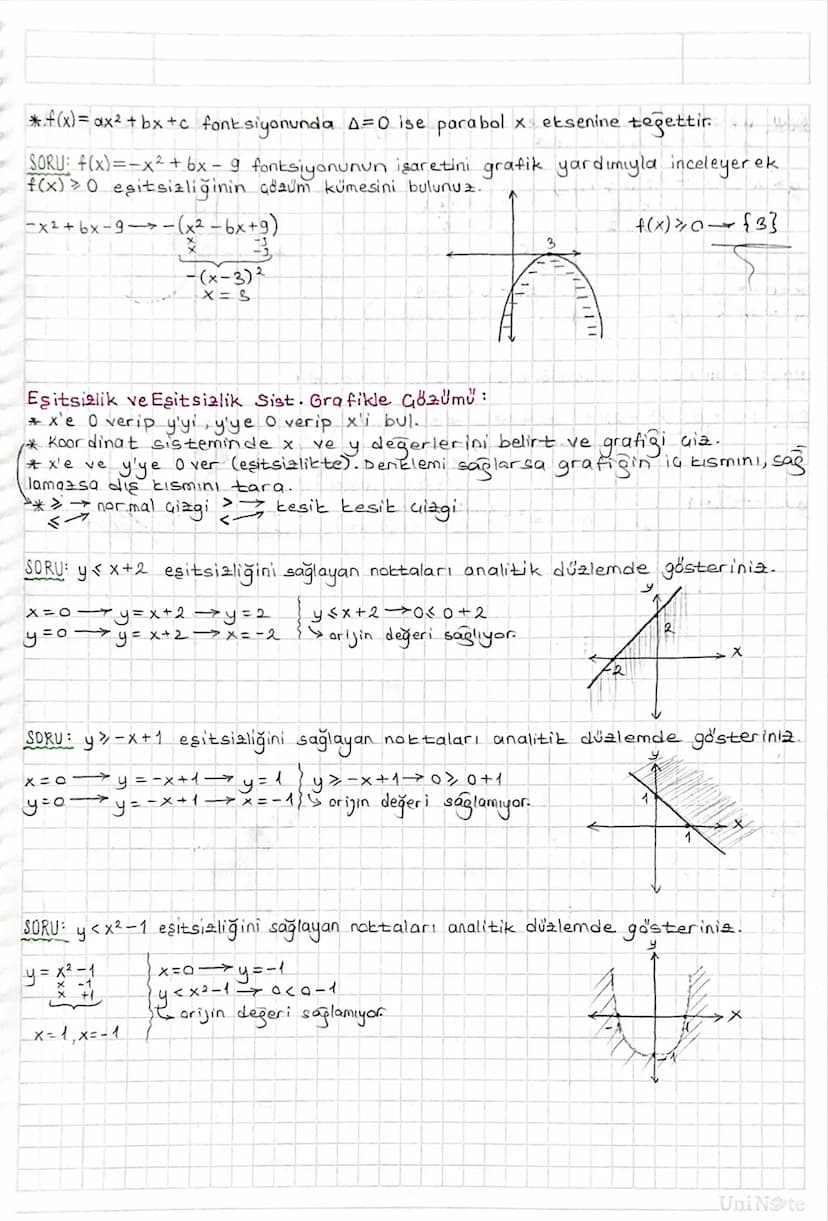 *f(x)=ax²+bx+c fonksiyonunda Δ=0 ise parabol x eksenine teğettir.
SORU: f(x)=-x²+6x-9 fonksiyonunun işaretini grafik yardımıyla inceleyerek
f(x)≥0 eşitsizliğinin çözüm kümesini bulunuz.
-x²+6x-9→-(x²-6x+9)
x -3
x -3
-(x-3)²
x=3
3
f(x)≥0→{3}
Eşitsizlik ve Eşitsizlik Sist. Grafikle Çözümü:
* x'e 0 verip y'yi, y'ye 0 verip x'i bul.
* Koordinat sisteminde x ve y değerlerini belirt ve grafiği çiz.
* x'e ve y'ye 0 ver (eşitsizlikte). Denklemi sağlarsa grafiğin iç kısmını, sağ
lamazsa dış kısmını tara.
* ≥ → normal çizgi > → kesik kesik çizgi
≤ <
SORU: y≤x+2 eşitsizliğini sağlayan noktaları analitik düzlemde gösteriniz.
x=0→y=x+2→y=2 y≤x+2→0≤0+2
y=0→y=x+2→x=-2 ↳ orijin değeri sağlıyor.
y
2
-2
x
SORU: y≥-x+1 eşitsizliğini sağlayan noktaları analitik düzlemde gösteriniz.
x=0→y=-x+1→y=1 y≥-x+1→0≥0+1
y=0→y=-x+1→x=-1 ↳ orijin değeri sağlamıyor.
y
1
x
1
SORU: y<x²-1 eşitsizliğini sağlayan noktaları analitik düzlemde gösteriniz.
y=x²-1
x -1
x +1
x=1, x=-1
x=0→y=-1
y<x²-1→0<0-1
↳ orijin değeri sağlamıyor.
y
x
-1
1
-1
UniNote